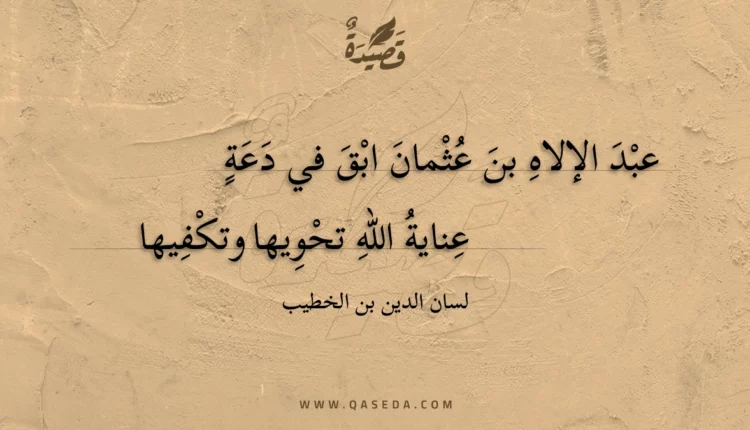 قَصِيْدَةٌ
عبْدَ الإلاهِ بنَ عُثْمانَ ابْقَ في دَعَةٍ
عِنايةُ اللهِ تحْوِيها وتكْفِيها
لسان الدين بن الخطيب
WWW.QASEDA.COM